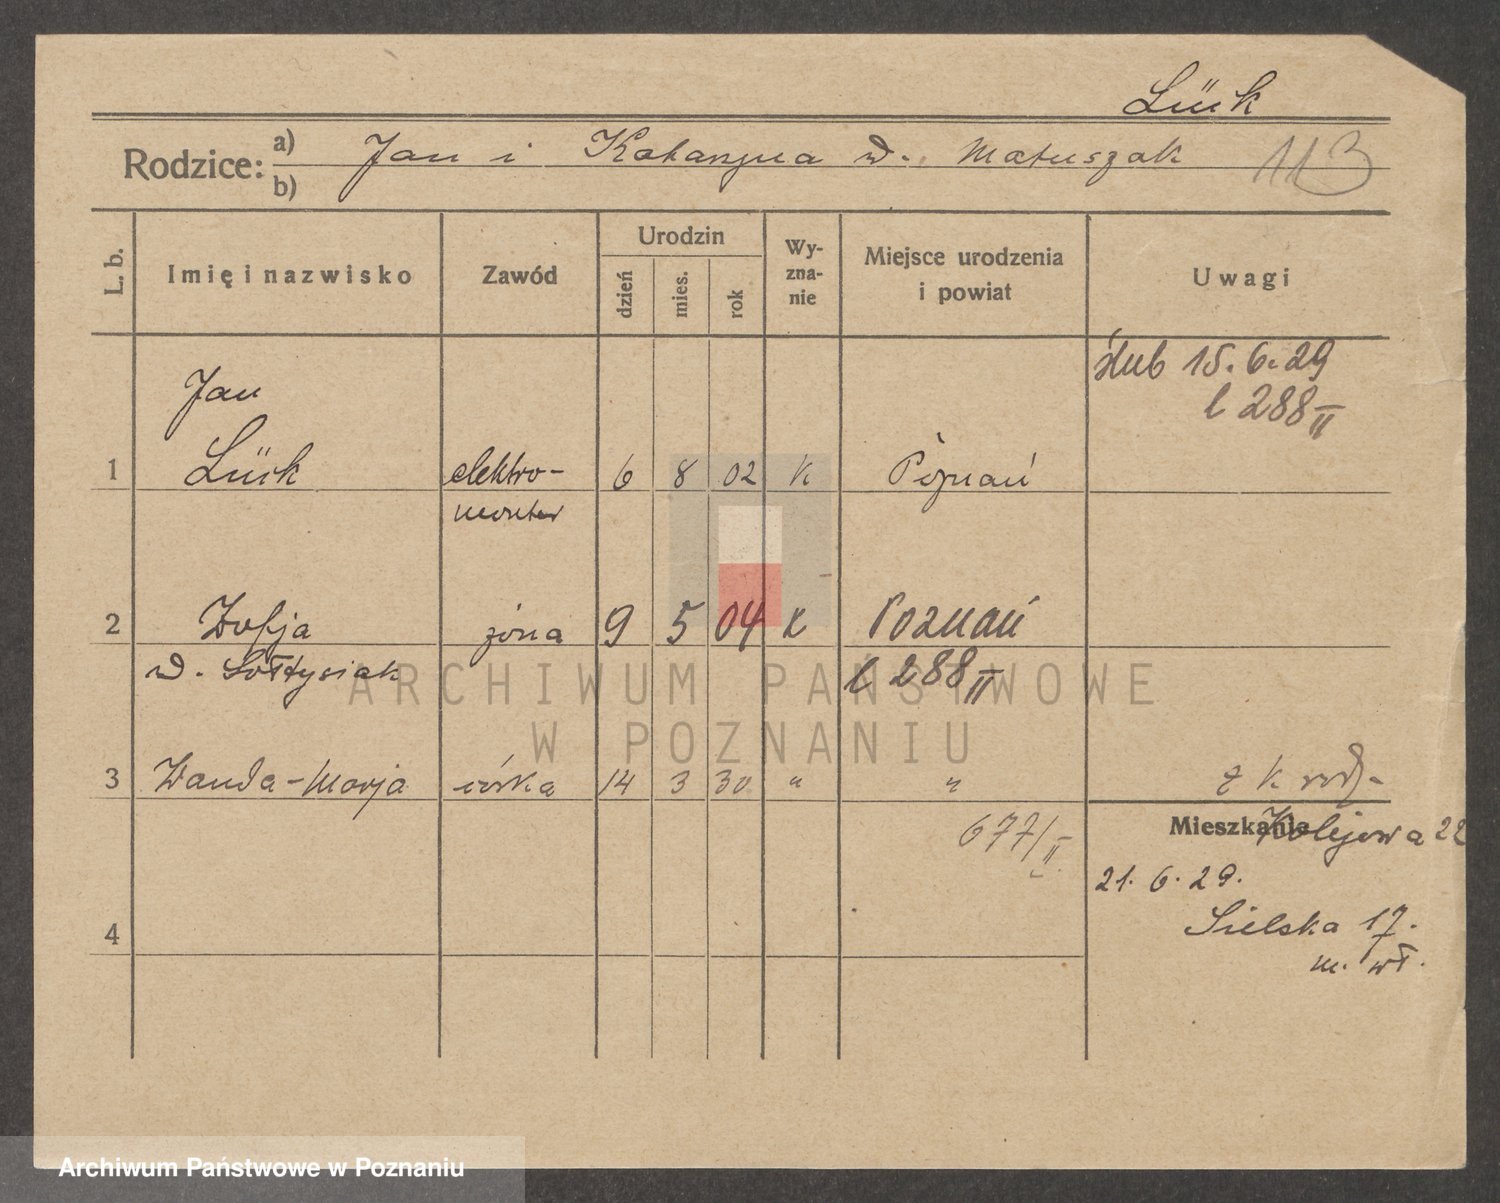 Lück
Rodzice: a) Jan i Katarzyna d. Matuszak 113
b)
L. b. Imię i nazwisko Zawód Urodzin dzień mies. rok Wy-zna-nie Miejsce urodzenia i powiat Uwagi
ślub 15. 6. 29
l 288 II
Jan
1 Lück elektro- 6 8 02 K Poznań
monter
2 Zofja żona 9 5 04 K Poznań
d. Sołtysiak l 288 II
ARCHIWUM PAŃSTWOWE
W POZNANIU
3 Wanda-Marja córka 14 3 30 " " z K rodz.
677/II.
Mieszkanie Kolejowa 22
21. 6. 29.
4 Sielska 17.
m. wł.
Archiwum Państwowe w Poznaniu